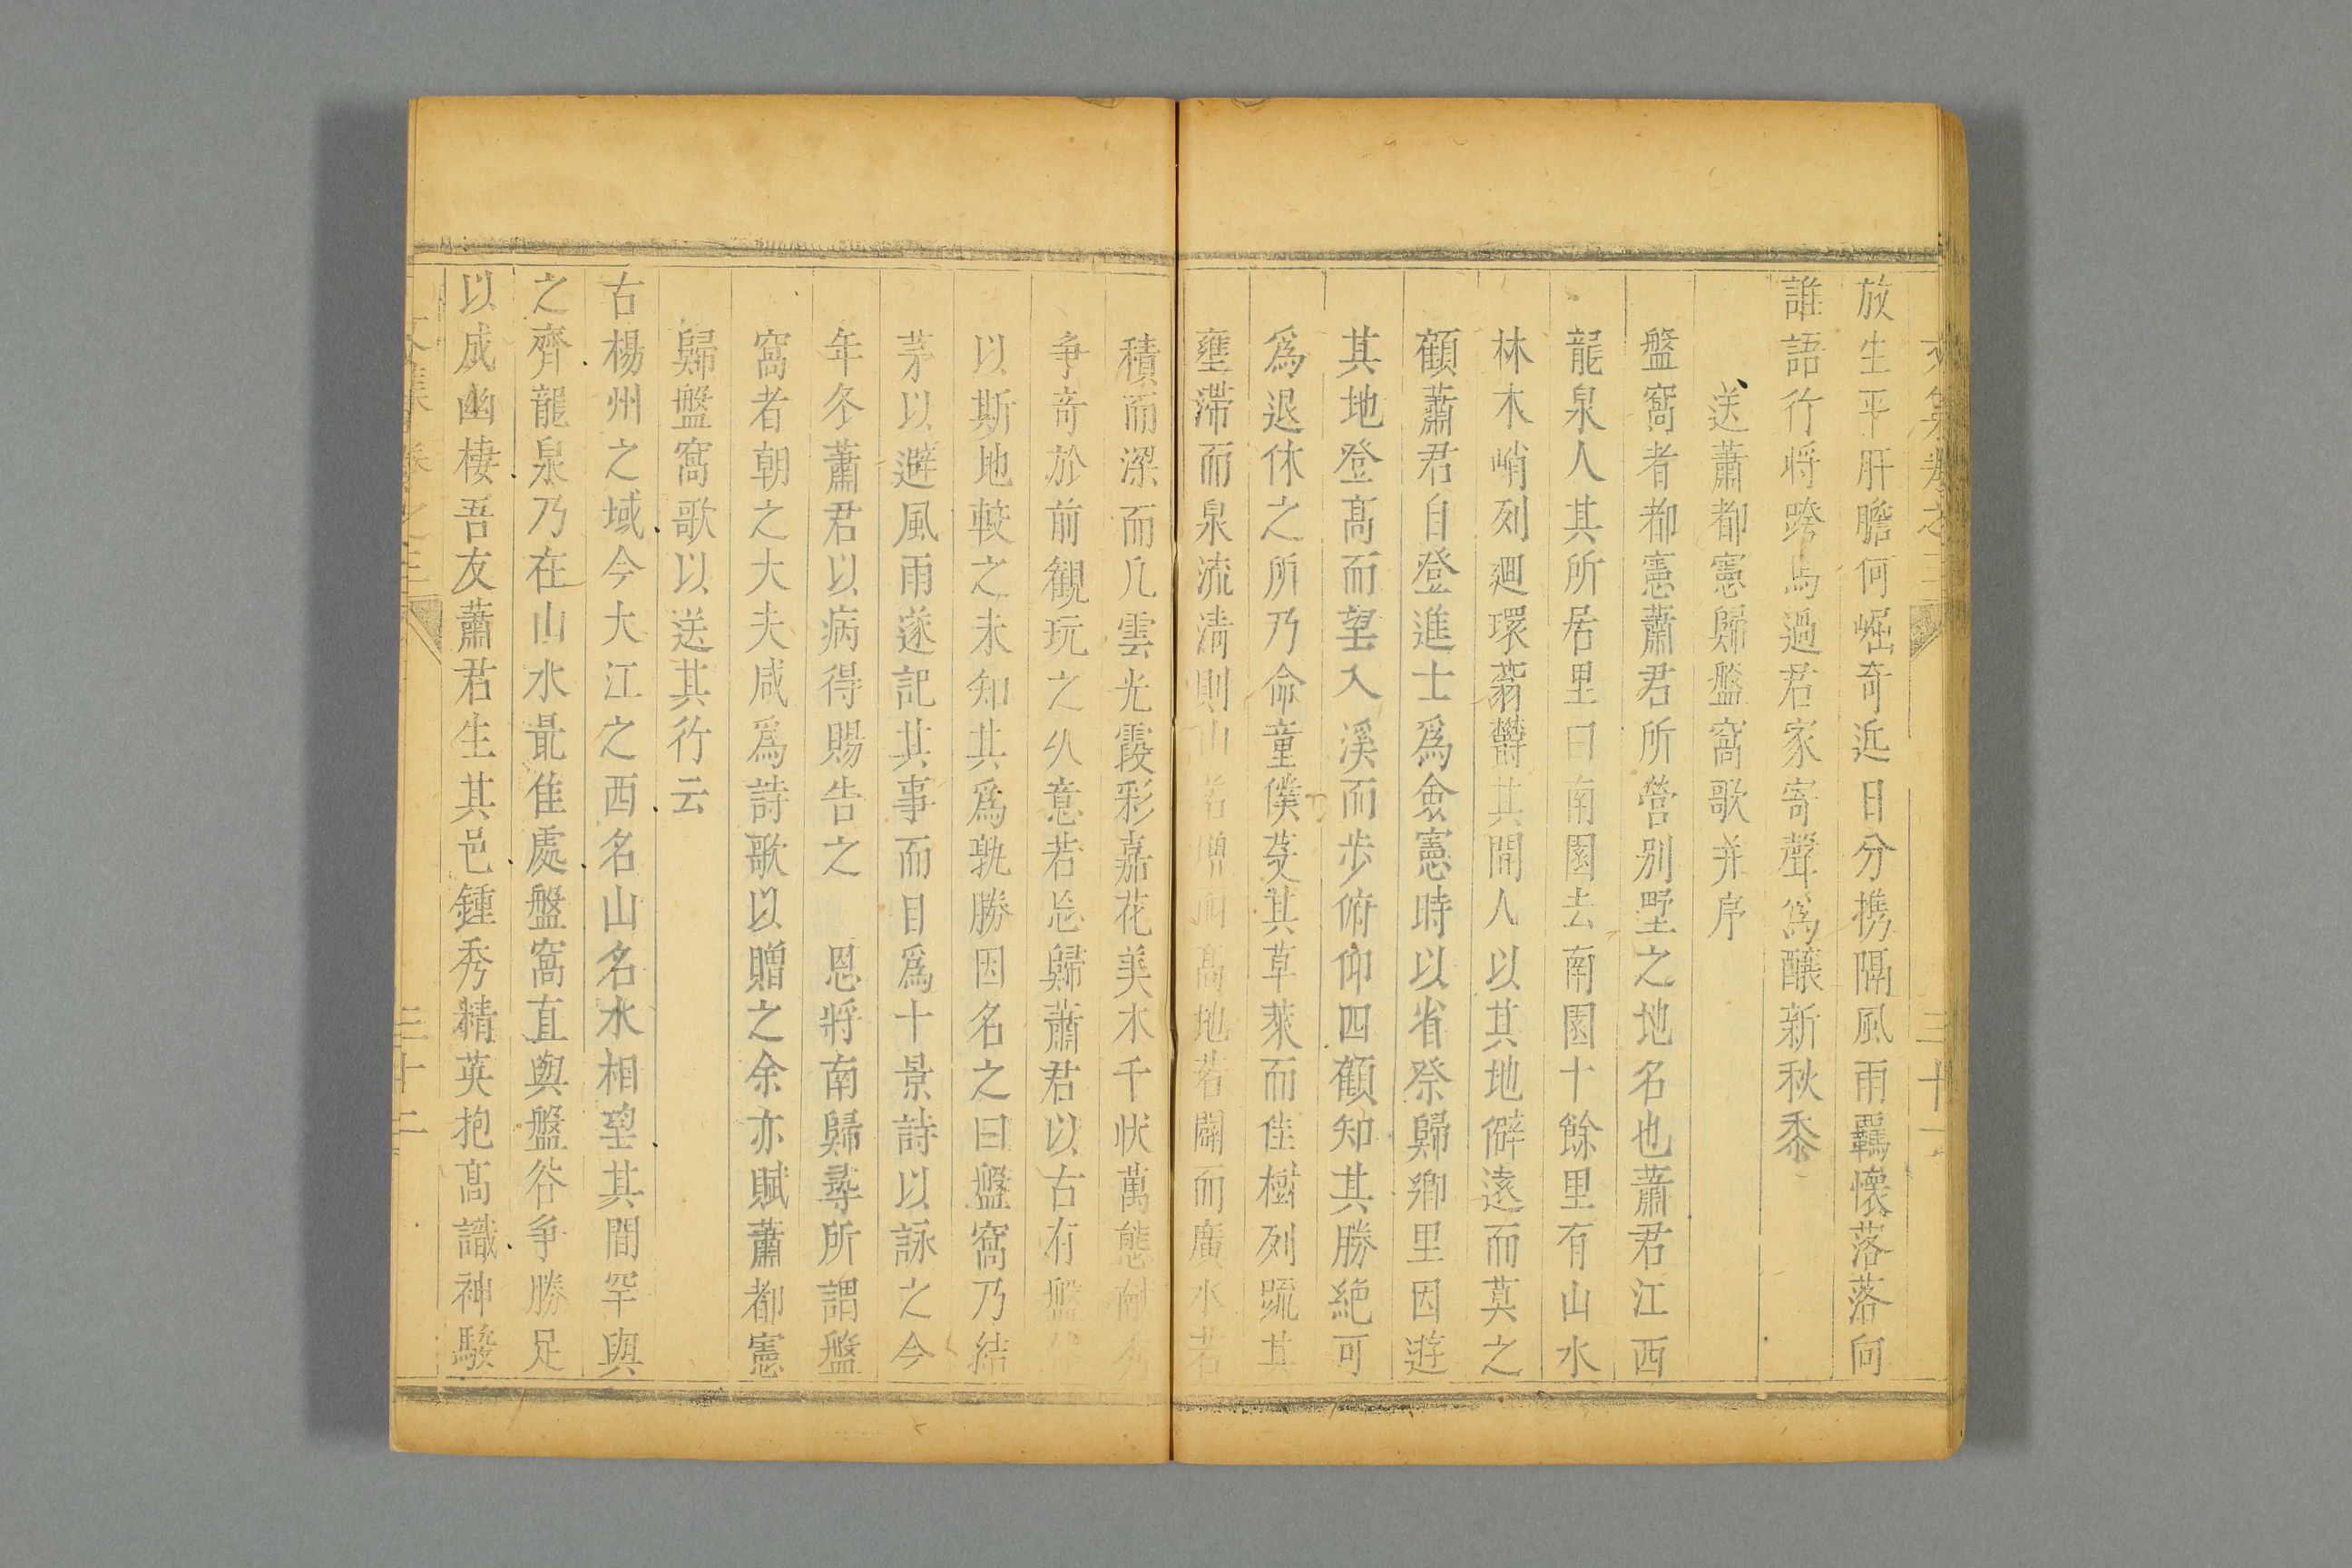 文集卷之三
三十一
放生平肝膽何崛奇近日分携隔風雨羈懷落落向
誰語行將跨馬過君家寄聲為釀新秋黍
送蕭都憲歸盤窩歌并序
盤窩者都憲蕭君所營别墅之地名也蕭君江西
龍泉人其所居里曰南園去南園十餘里有山水
林木峭列廻環蓊欝其間人以其地僻遠而莫之
顧蕭君自登進士爲僉憲時以省祭歸鄉里因遊
其地登高而望入溪而步俯仰四顧知其勝絶可
爲退休之所乃命童僕芟其草萊而佳樹列䟽其
壅滯而泉流清則山若增而高地若闢而廣水若
積而深而凡雲光霞彩嘉花美木千狀萬態献秀
争奇於前觀玩之久意若忘歸蕭君以古有盤谷
以斯地較之未知其爲孰勝因名之曰盤窩乃結
茅以避風雨遂記其事而目爲十景詩以詠之今
年冬蕭君以病得賜告之 恩將南歸尋所謂盤
窩者朝之大夫咸爲詩歌以贈之余亦賦蕭都憲
歸盤窩歌以送其行云
古楊州之域今大江之西名山名水相望其間罕與
之齊龍泉乃在山水最佳處盤窩直與盤谷争勝足
以成幽棲吾友蕭君生其邑鍾秀精英抱高識神駿
文集卷之三
三十二